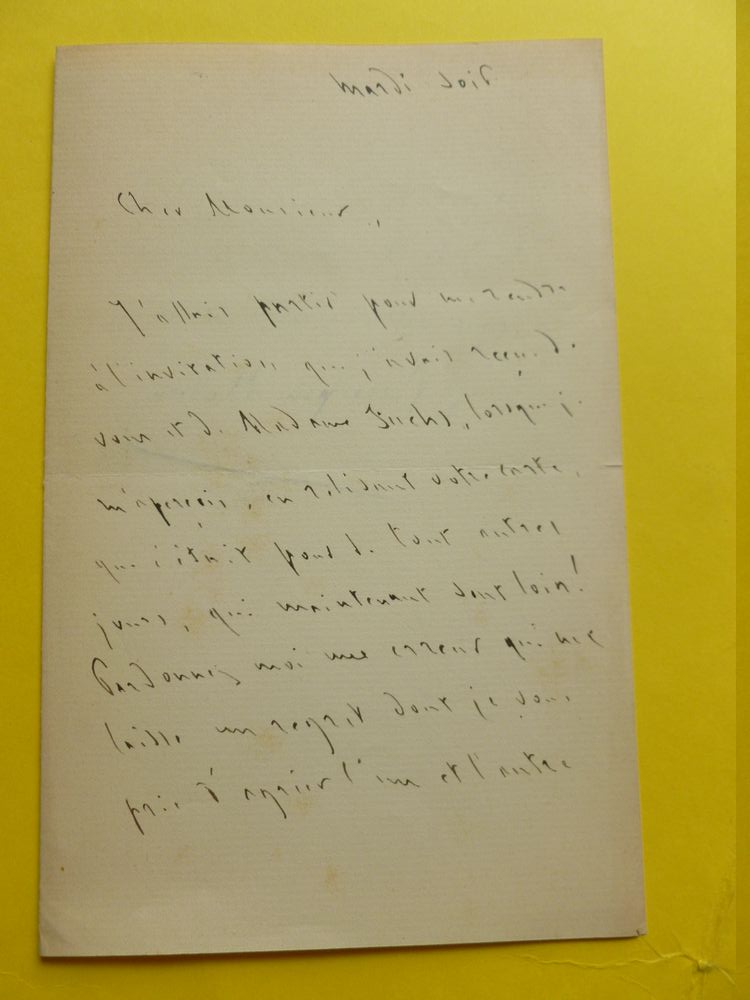 Mardi soir
Cher Monsieur,
J'allais partir pour me rendre
à l'invitation que j'avais reçue de
vous et de Madame Fuchs, lorsque je
m'aperçois, en relisant votre carte,
que c'était pour de tout autres
jours, qui maintenant sont loin!
Pardonnez moi une erreur qui me
laisse un regret dont je vous
prie d'agréer l'un et l'autre